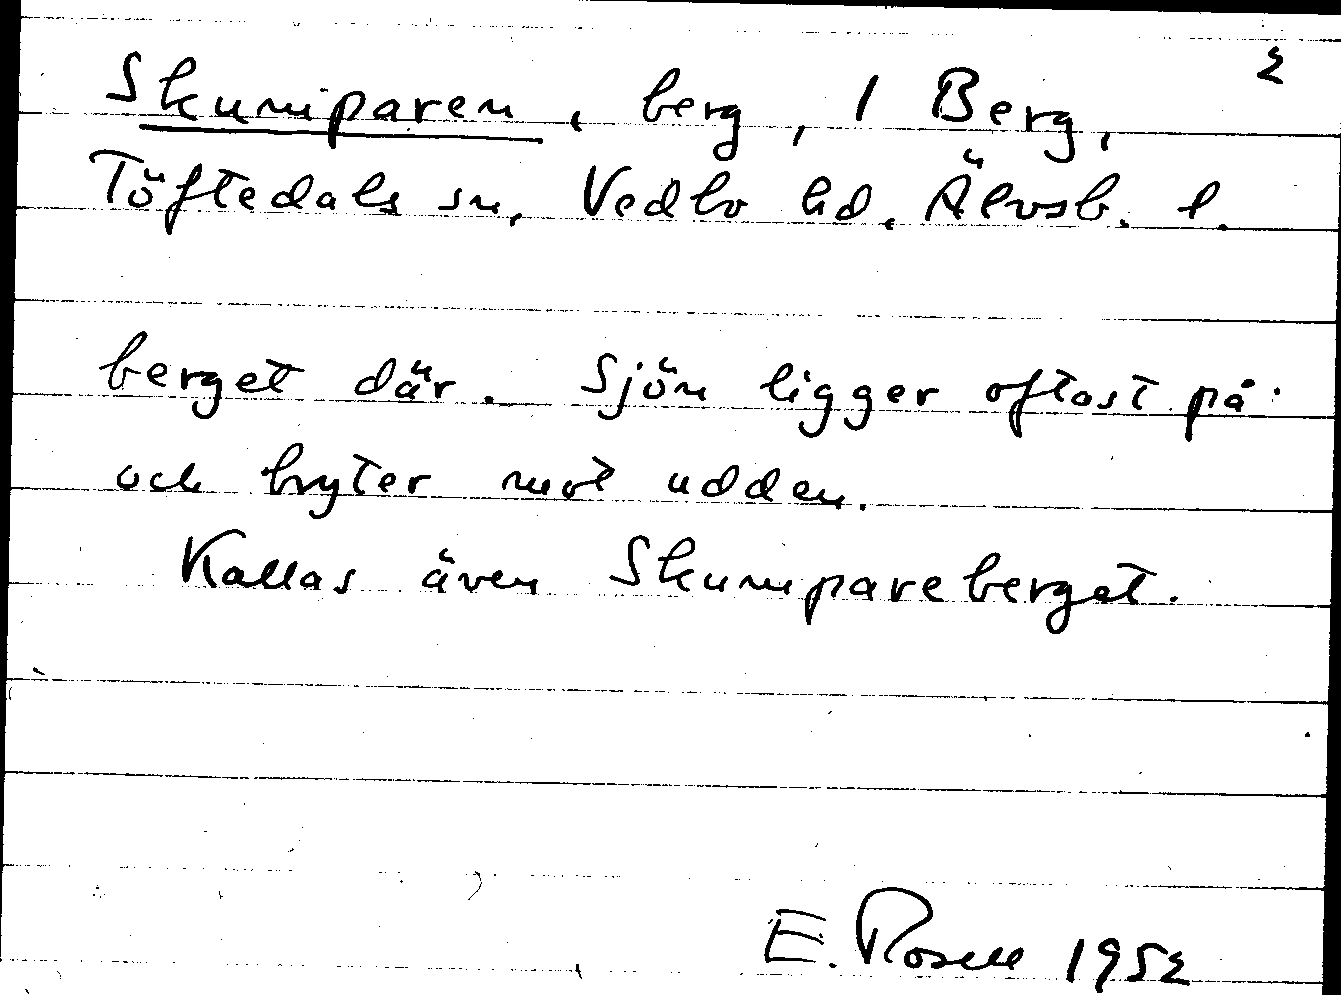 2
Skumparen, berg, 1 Berg,
Töftedals sn, Vedbo hd, Älvsb. l.
berget där. Sjön ligger oftast på
och bryter mot udden.
Kallas även Skumpareberget.
E. Rosell 1952